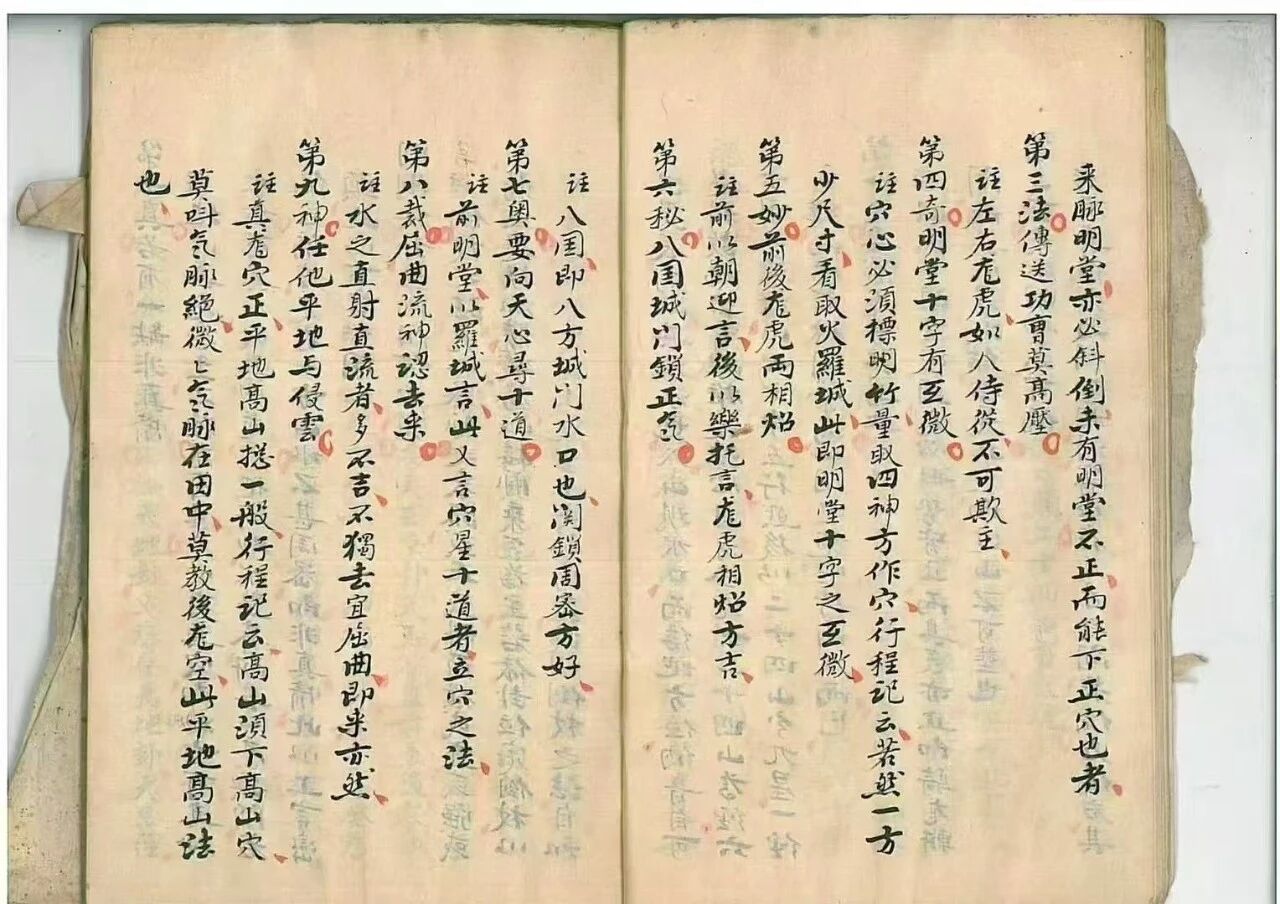 来脉明堂亦必斜倒未有明堂不正而能下正穴也者
第三法傳送功曺莫高壓
註左右龙虎如人侍從不可欺主
第四奇明堂十字有玄微
註穴心必須標明竹量取四神方作穴行程记云若然一方
少尺寸看取火羅城此即明堂十字之玄微
第五妙前後龙虎両相炤
註前以朝迎言後以樂托言龙虎相炤方吉
第六秘八囯城门鎖正气
註八囯即八方城门水口也関鎖周密方好
第七奥要向天心尋十道
註前明堂以羅城言此又言穴星十道者立穴之法
第八裁屈曲流神认去来
註水之直射直流者多不吉不獨去宜屈曲即来亦然
第九神任他平地与侵雲
註真龙穴正平地高山搃一般行程记云高山须下高山穴
莫呌气脉絕微〻气脉在田中莫教後龙空此平地高山法
也